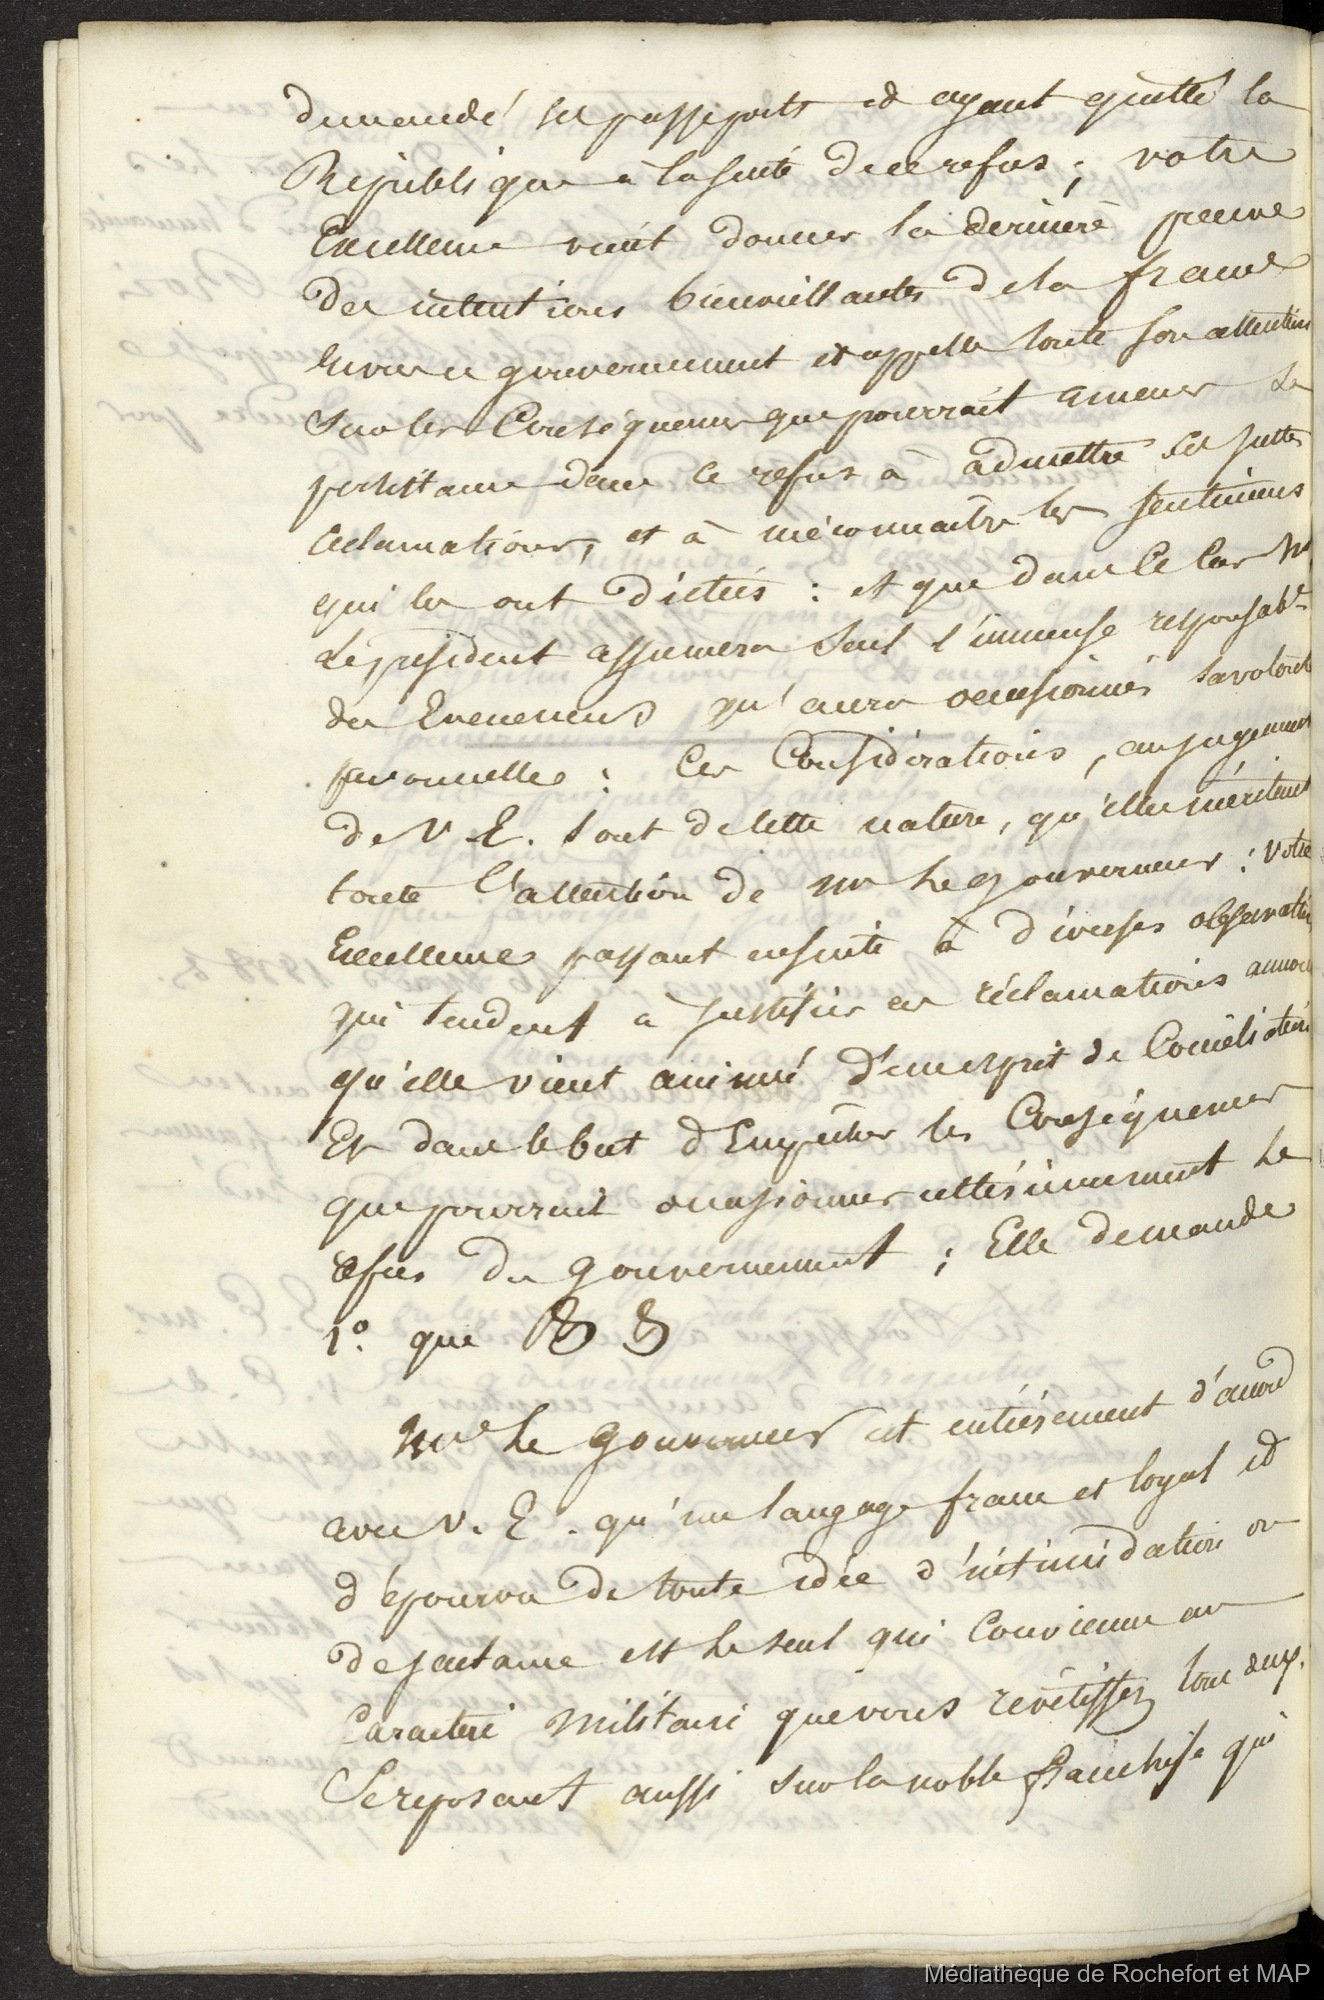 demandé ses passeports et ayant quitté la
République à la suite de ce refus ; votre
Excellence vient donner la derniere preuve
des intentions bienveillantes de la france
envers ce gouvernement et appelle toute son attention
sur les Conséquences que pourrait amener sa
persistance dans ce refus à admettre ses justes
réclamations, et à méconnaitre les sentimens
qui les ont dictées : et que dans ce cas Mr
Le président assumera seul l'immense responsabté
des Evenemens qu'aura occasionnés sa volonté
personnelle : Ces Considérations, au jugement
de V. E. sont de telle nature, qu'elles méritent
toute l'attention de Mr le gouverneur : votre
Excellence passant ensuite à diverses observations
qui tendent à justifier ces réclamations annonce
qu'elle vient animé d'un esprit de Conciliation
Et dans le but d'Empêcher les Conséquences
que pourrait occasionner ultérieurement le
refus du gouvernement ; Elle demande
1º. que & &
Mr le gouverneur est entiérement d'accord
avec V. E. qu'un langage franc et loyal et
dépourvu de toute idée d'intimidation ou
de jactance est le seul qui Convienne au
Caractere militaire que vous revêtissez tous deux.
Se reposant aussi sur la noble franchise qui
Médiathèque de Rochefort et MAP